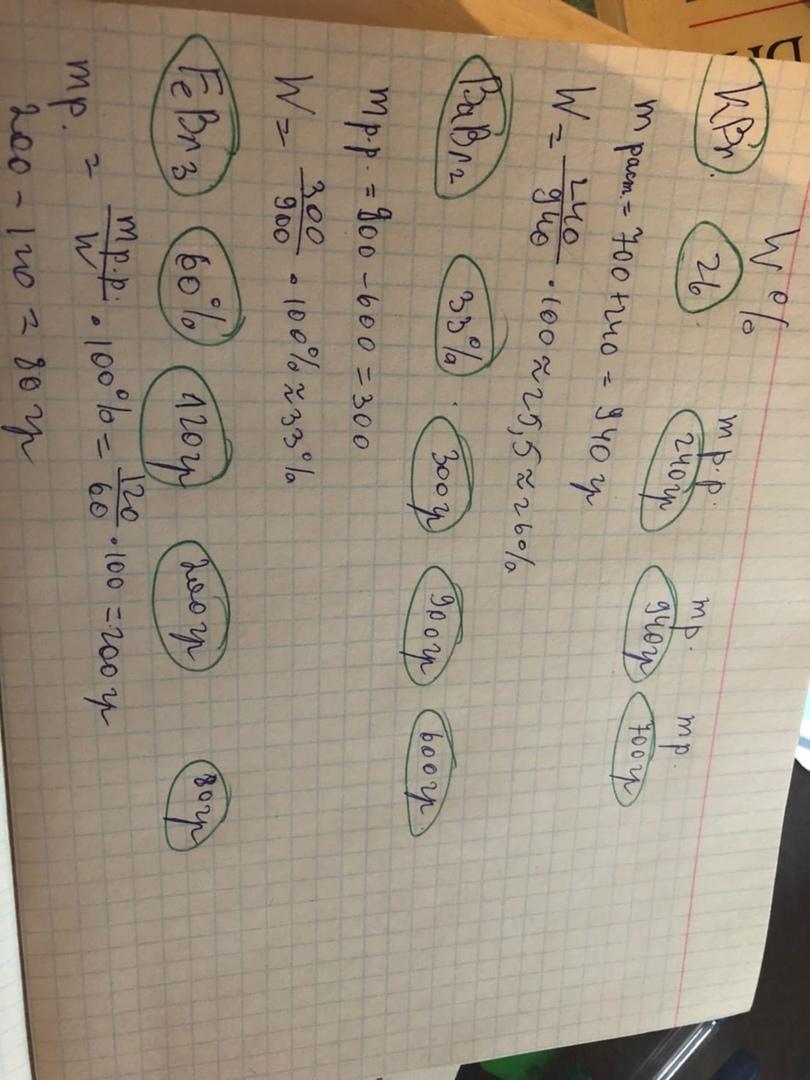 W% m р.р. m р. m р.
KBr. 26 240гр 940гр 700гр
m раст. = 700 + 240 = 940 гр
W = 240/940 · 100 ≈ 25,5 ≈ 26%
BaBr2 33% 300гр 900гр 600гр
m р.р. = 900 - 600 = 300
W = 300/900 · 100% ≈ 33%
FeBr3 60% 120гр 200гр 80гр
m р. = m р.р./W · 100% = 120/60 · 100 = 200 гр
200 - 120 = 80 гр